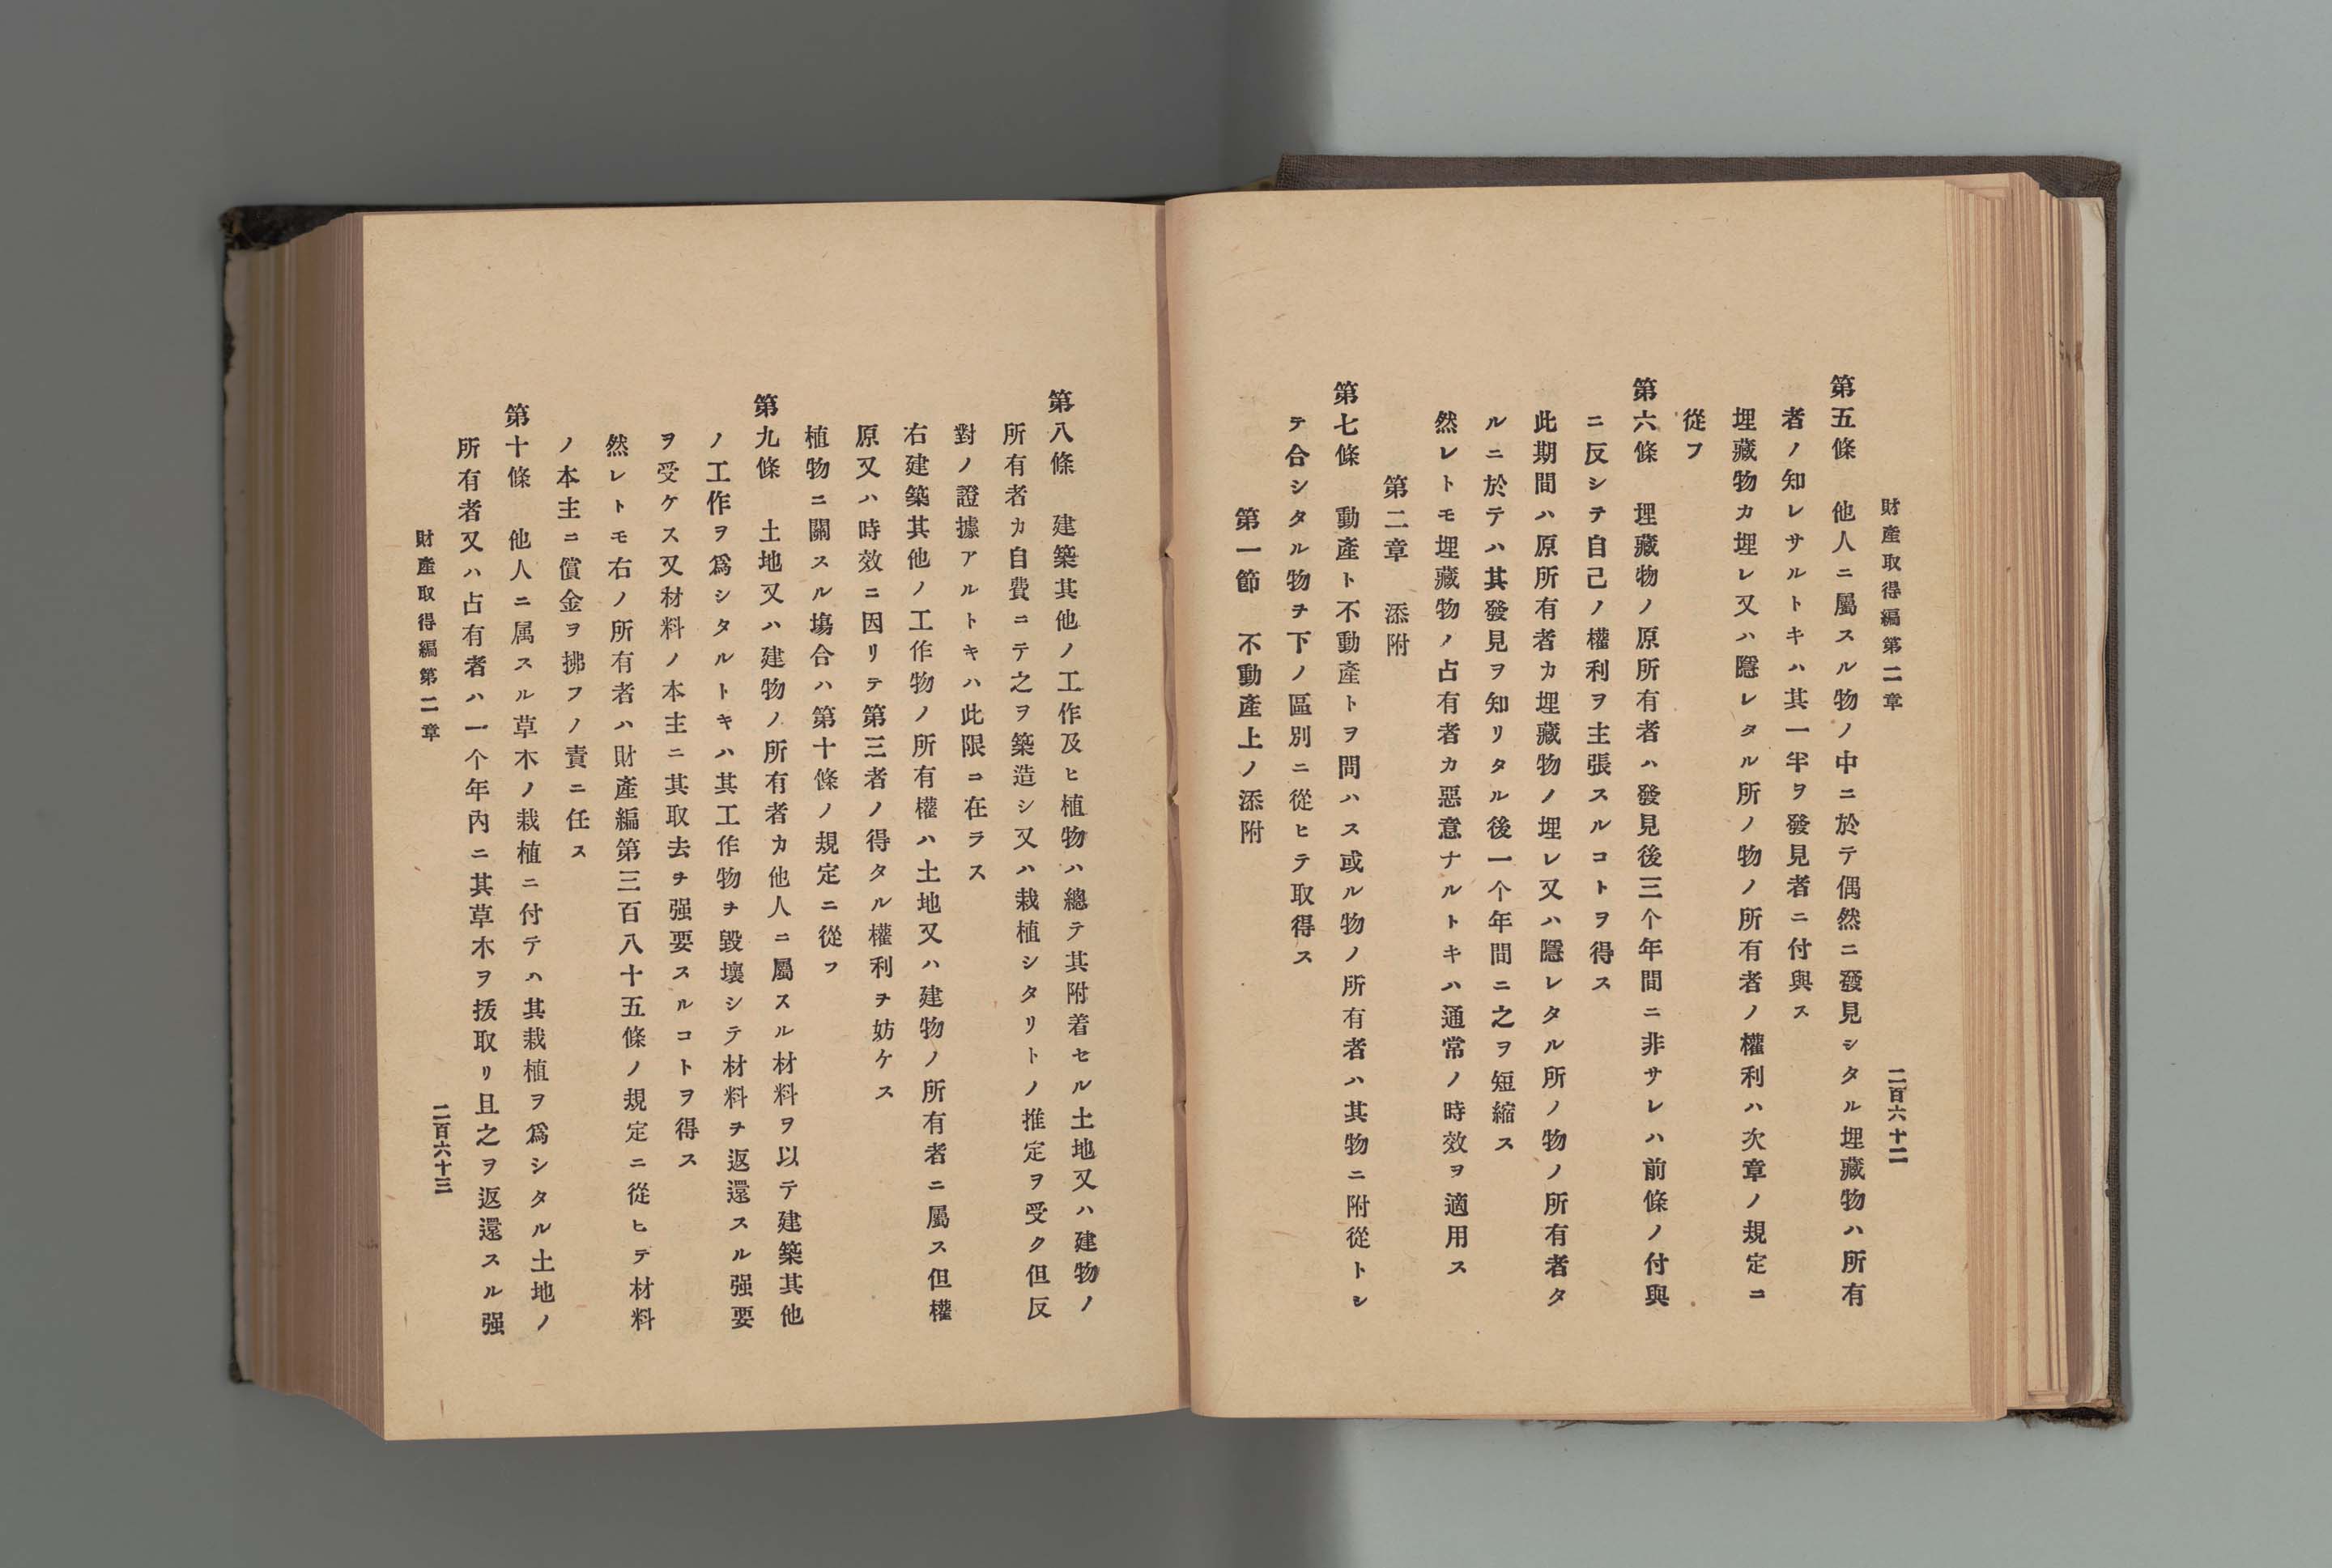 財產取得編第二章
二百六十二
第五條　他人ニ屬スル物ノ中ニ於テ偶然ニ發見シタル埋藏物ハ所有
者ノ知レサルトキハ其一半ヲ發見者ニ付與ス
埋藏物カ埋レ又ハ隱レタル所ノ物ノ所有者ノ權利ハ次章ノ規定ニ
從フ
第六條　埋藏物ノ原所有者ハ發見後三个年間ニ非サレハ前條ノ付與
ニ反シテ自己ノ權利ヲ主張スルコトヲ得ス
此期間ハ原所有者カ埋藏物ノ埋レ又ハ隱レタル所ノ物ノ所有者タ
ルニ於テハ其發見ヲ知リタル後一个年間ニ之ヲ短縮ス
然レトモ埋藏物ノ占有者カ惡意ナルトキハ通常ノ時效ヲ適用ス
第二章　添附
第七條　動產ト不動產トヲ問ハス或ル物ノ所有者ハ其物ニ附從トシ
テ合シタル物ヲ下ノ區別ニ從ヒテ取得ス
第一節　不動產上ノ添附
第八條　建築其他ノ工作及ヒ植物ハ總テ其附着セル土地又ハ建物ノ
所有者カ自費ニテ之ヲ築造シ又ハ栽植シタリトノ推定ヲ受ク但反
對ノ證據アルトキハ此限ニ在ラス
右建築其他ノ工作物ノ所有權ハ土地又ハ建物ノ所有者ニ屬ス但權
原又ハ時效ニ因リテ第三者ノ得タル權利ヲ妨ケス
植物ニ關スル塲合ハ第十條ノ規定ニ從フ
第九條　土地又ハ建物ノ所有者カ他人ニ屬スル材料ヲ以テ建築其他
ノ工作ヲ爲シタルトキハ其工作物ヲ毀壞シテ材料ヲ返還スル强要
ヲ受ケス又材料ノ本主ニ其取去ヲ强要スルコトヲ得ス
然レトモ右ノ所有者ハ財產編第三百八十五條ノ規定ニ從ヒテ材料
ノ本主ニ償金ヲ拂フノ責ニ任ス
第十條　他人ニ属スル草木ノ栽植ニ付テハ其栽植ヲ爲シタル土地ノ
所有者又ハ占有者ハ一个年內ニ其草木ヲ拔取リ且之ヲ返還スル强
財產取得編第二章
二百六十三